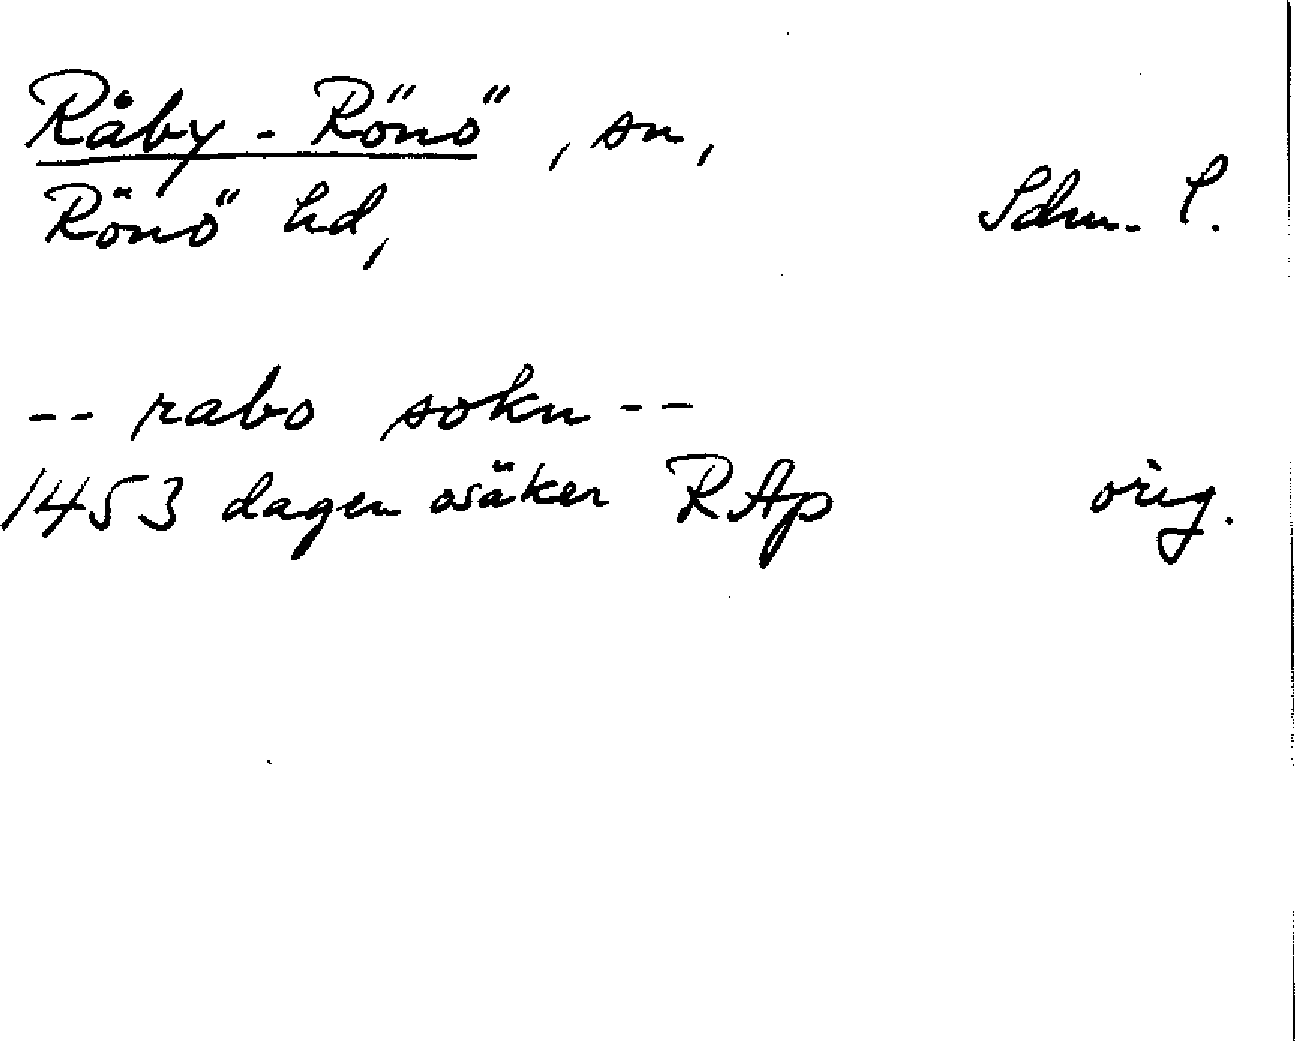 Råby-Rönö, sn,
Rönö hd, Sdm. l.
-- rabo sokn --
1453 dagen osäker RAp orig.